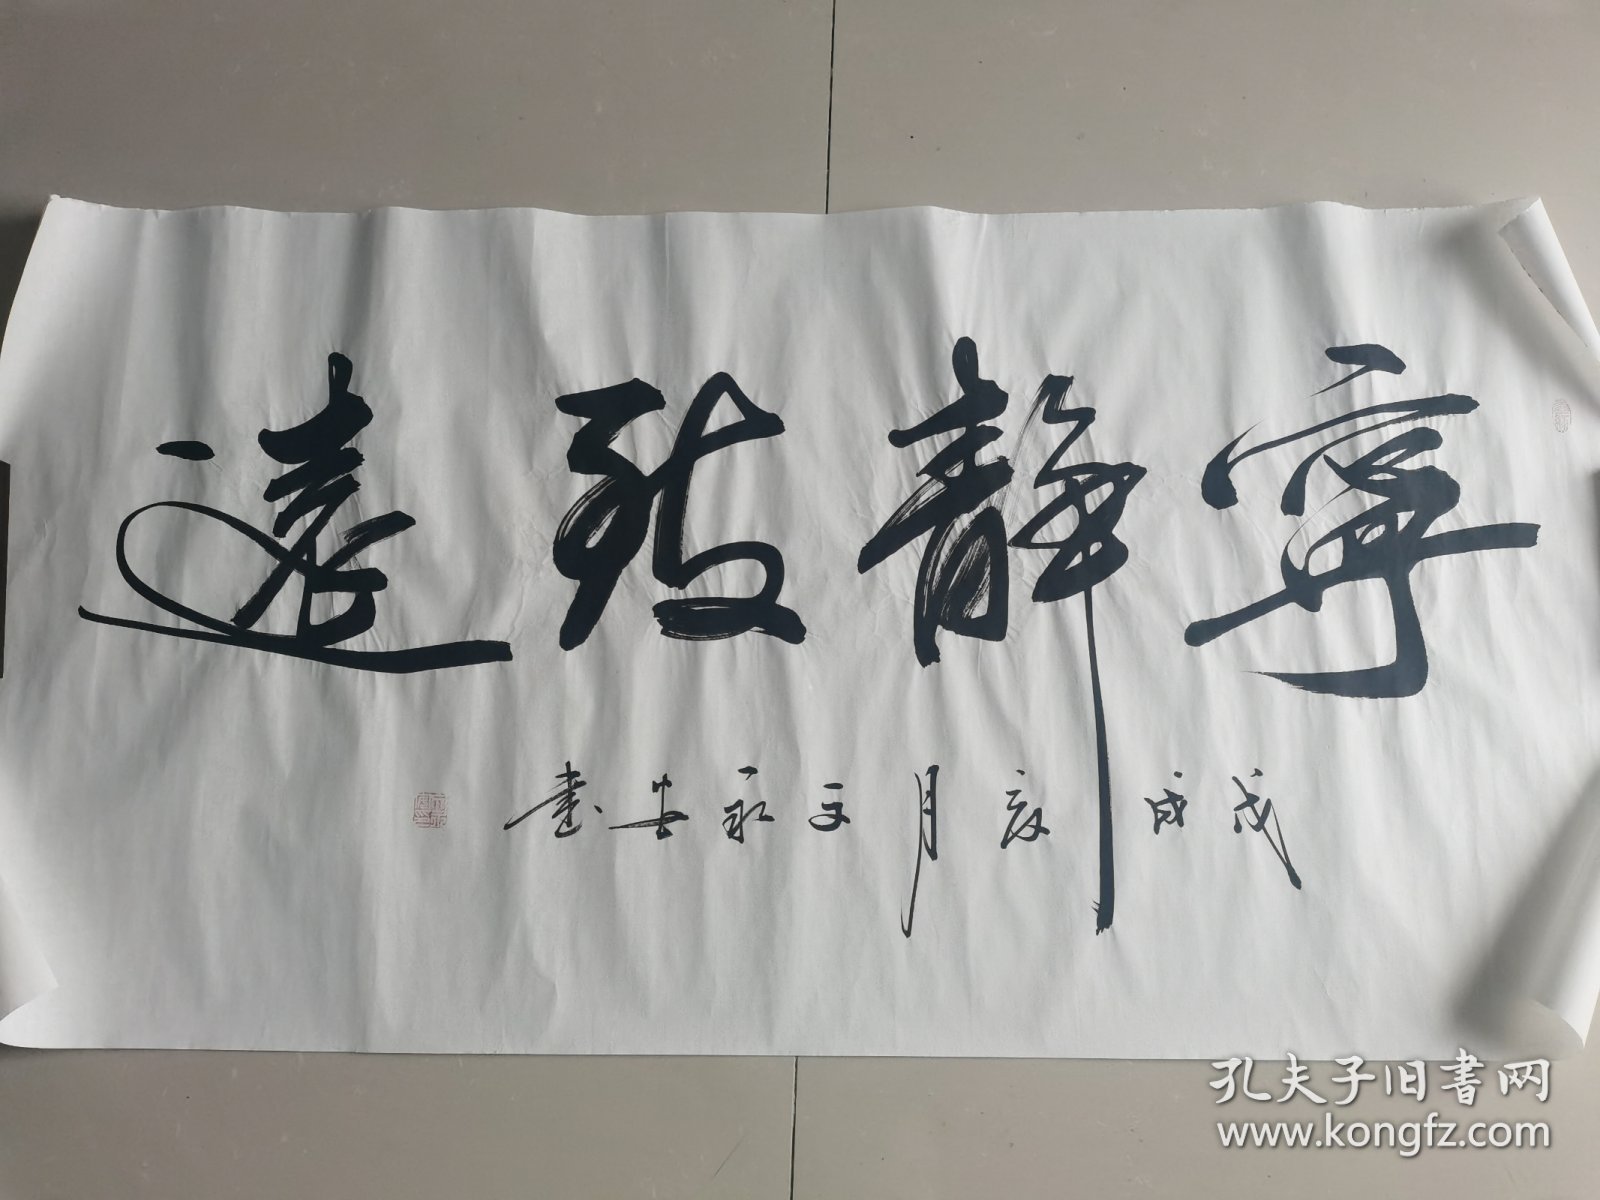 寧靜致遠
戊戌夏月文永安書
孔夫子旧书网
www.kongfz.com